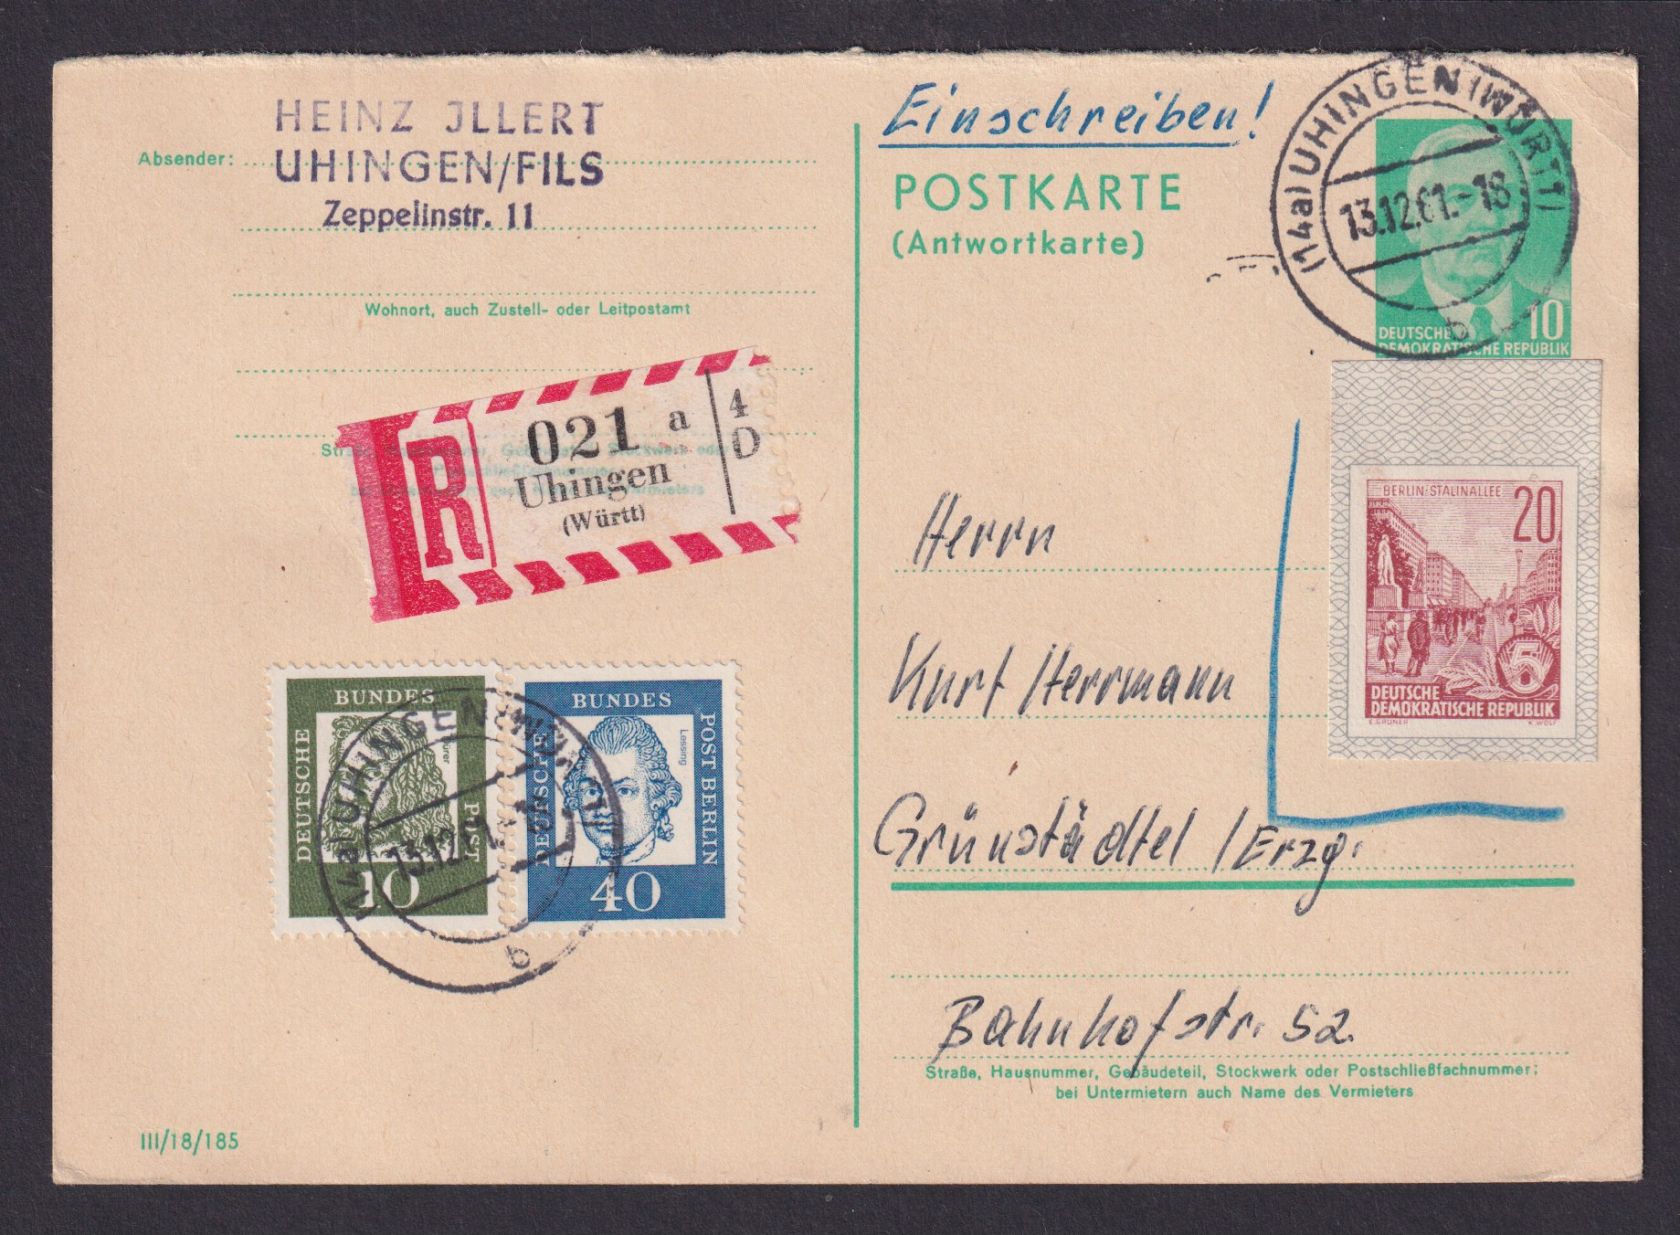 HEINZ JLLERT
Absender:
UHINGEN/FILS
Zeppelinstr. 11
Wohnort, auch Zustell- oder Leitpostamt
R
021 a
Uhingen
(Württ)
4
D
DEUTSCHE
BUNDES
POST
10
DEUTSCHE
BUNDES
POST BERLIN
Lessing
40
(14a) UHINGEN (WÜRTT)
b
III/18/185
Einschreiben!
POSTKARTE
(Antwortkarte)
(14a) UHINGEN (WÜRTT)
13.12.61.-18
b
10
DEUTSCHE
DEMOKRATISCHE REPUBLIK
BERLIN-STALINALLEE
20
5
DEUTSCHE
DEMOKRATISCHE REPUBLIK
E.GRUNER K.WOLF
Herrn
Kurt Herrmann
Grünstädtel / Erzg.
Bahnhofstr. 52.
Straße, Hausnummer, Gebäudeteil, Stockwerk oder Postschließfachnummer;
bei Untermietern auch Name des Vermieters